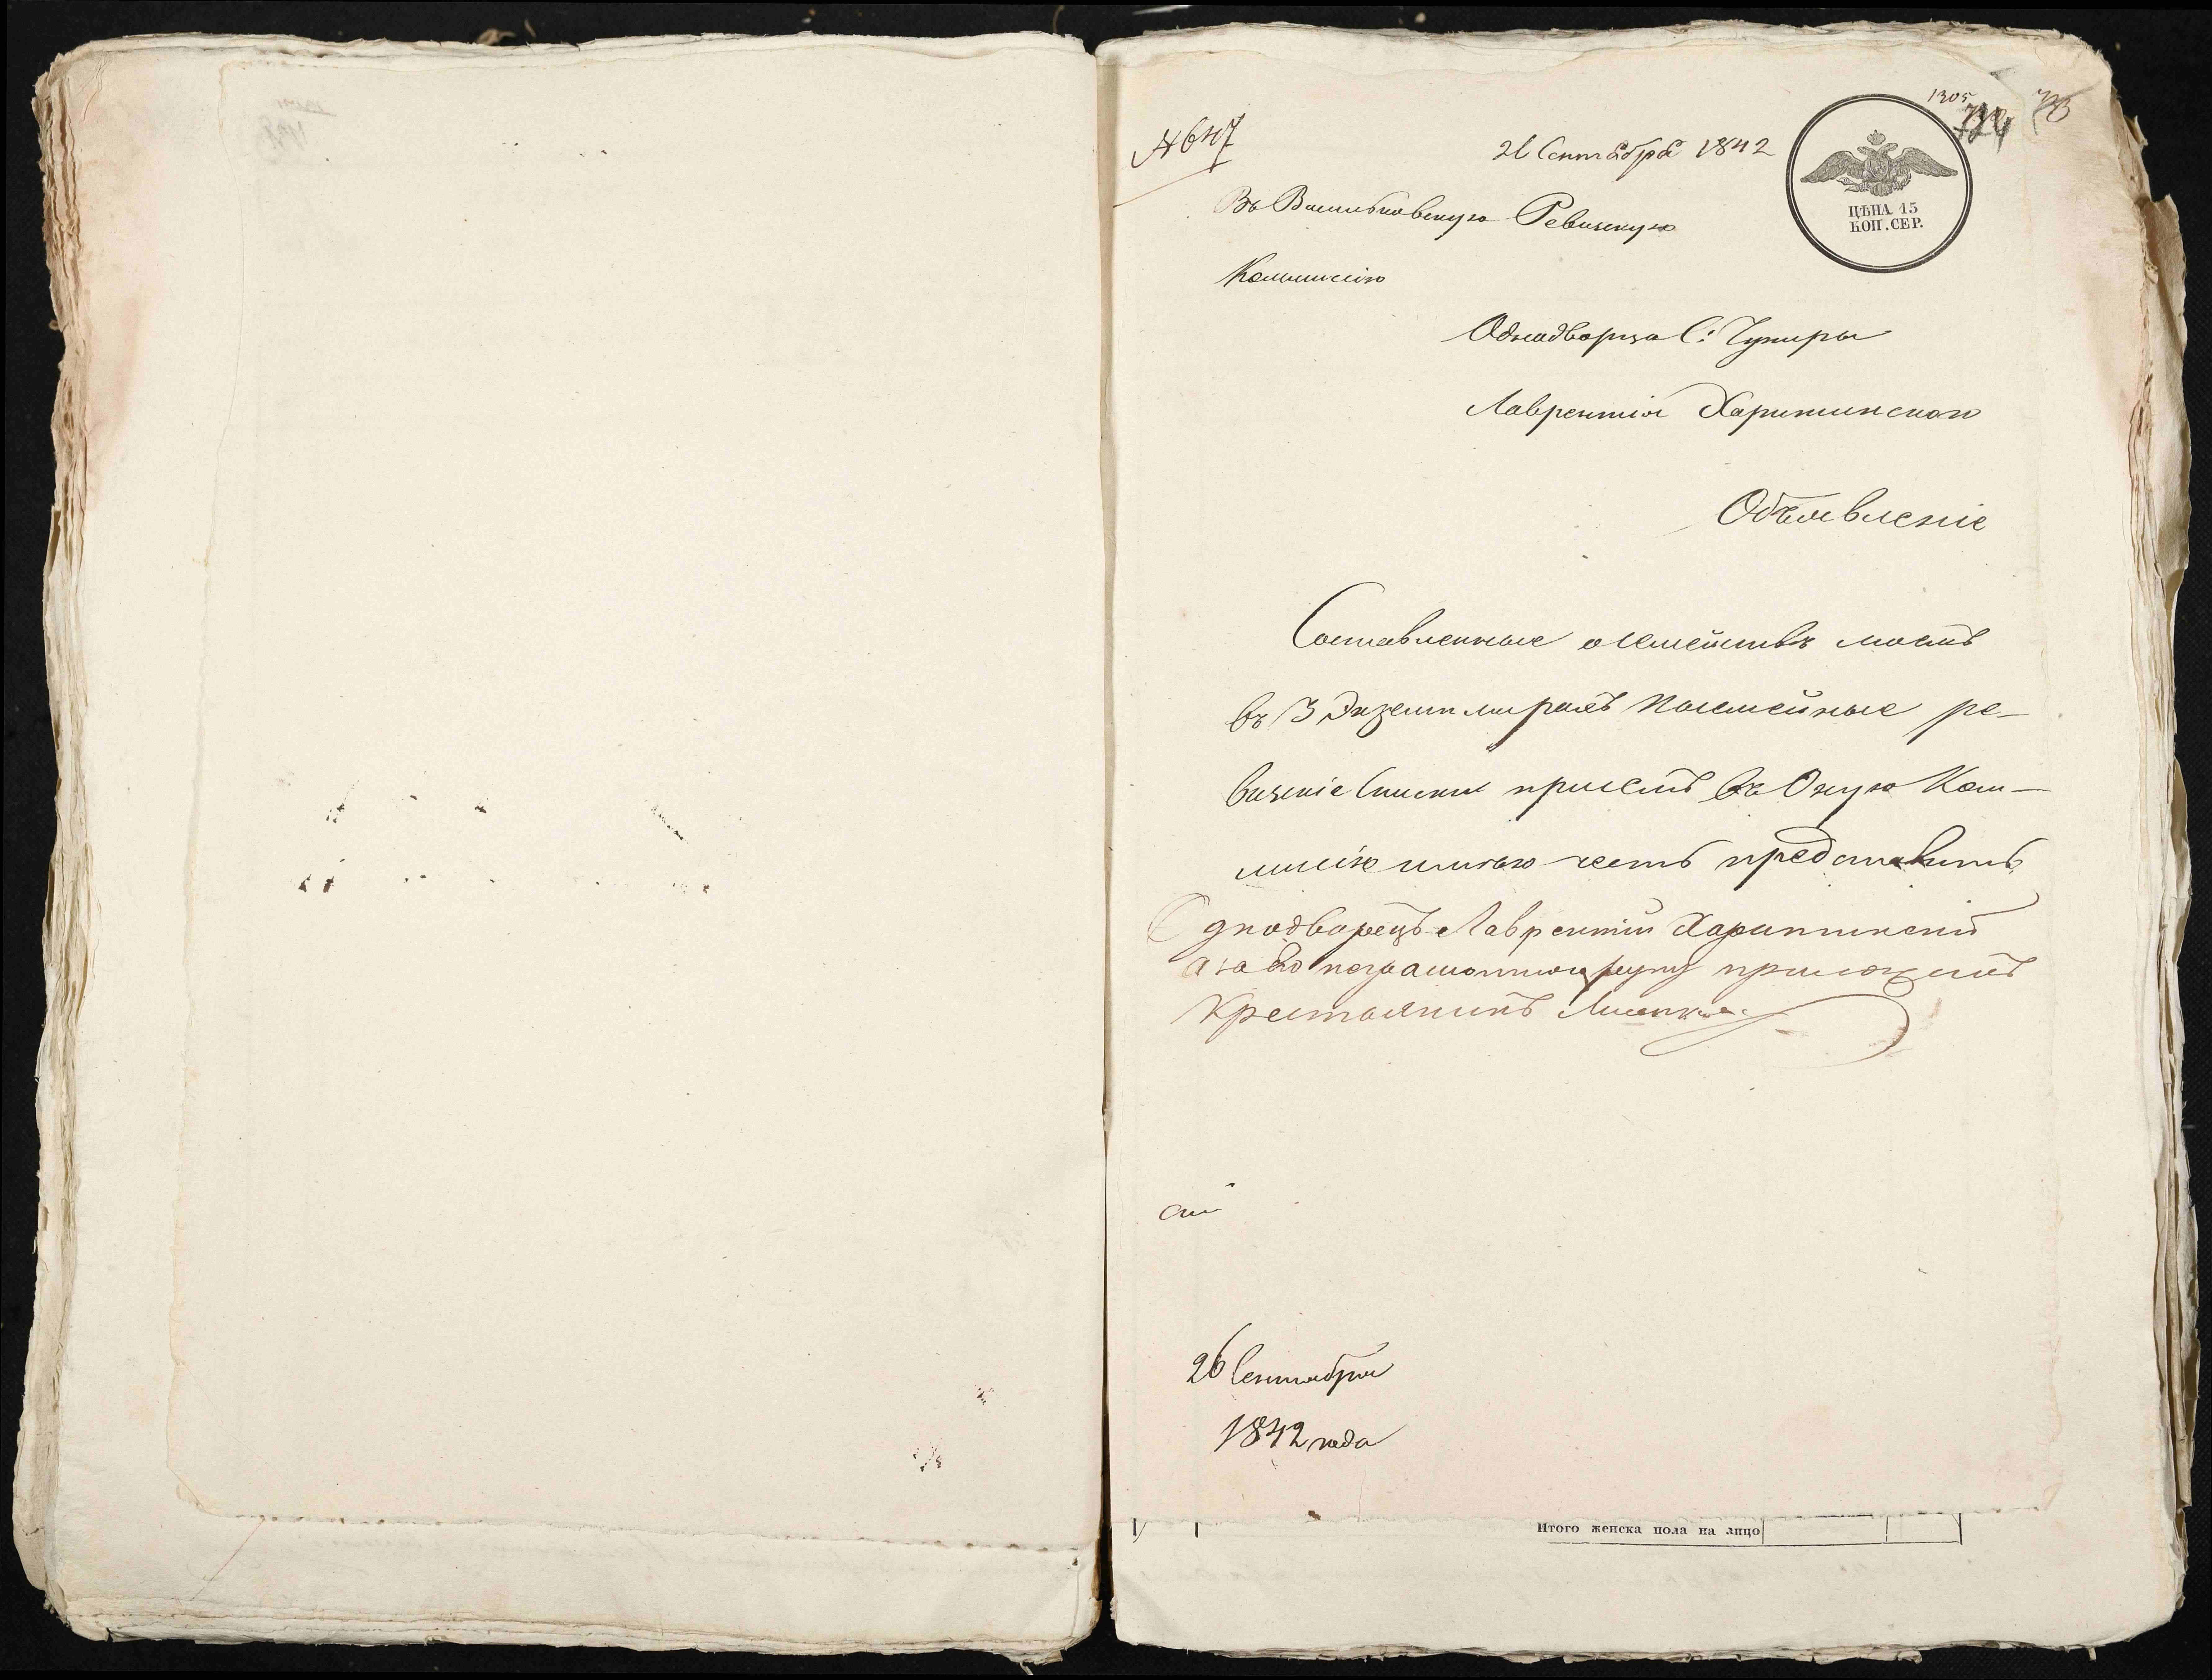 1305
724
№ 647
26 Сентября 1842
ЦѢНА 15
КОП. СЕР.
Въ Васильковскую Ревизскую
Коммисію
Однодворца С: Чупиры
Лаврентія Харитинского
Объявленіе
Составленные о Семѣйствѣ моемъ
въ 3 Экземплирахъ Посемейные ре-
визскіе Списки присемъ въ Оную Ком-
мисію имѣю честь представить
Однодворецъ Лаврентій Харитинскій
а за его неграмотнаго руку приложилъ
Крестьянинъ
26 Сентября
1842 года
Итого женска пола на лицо